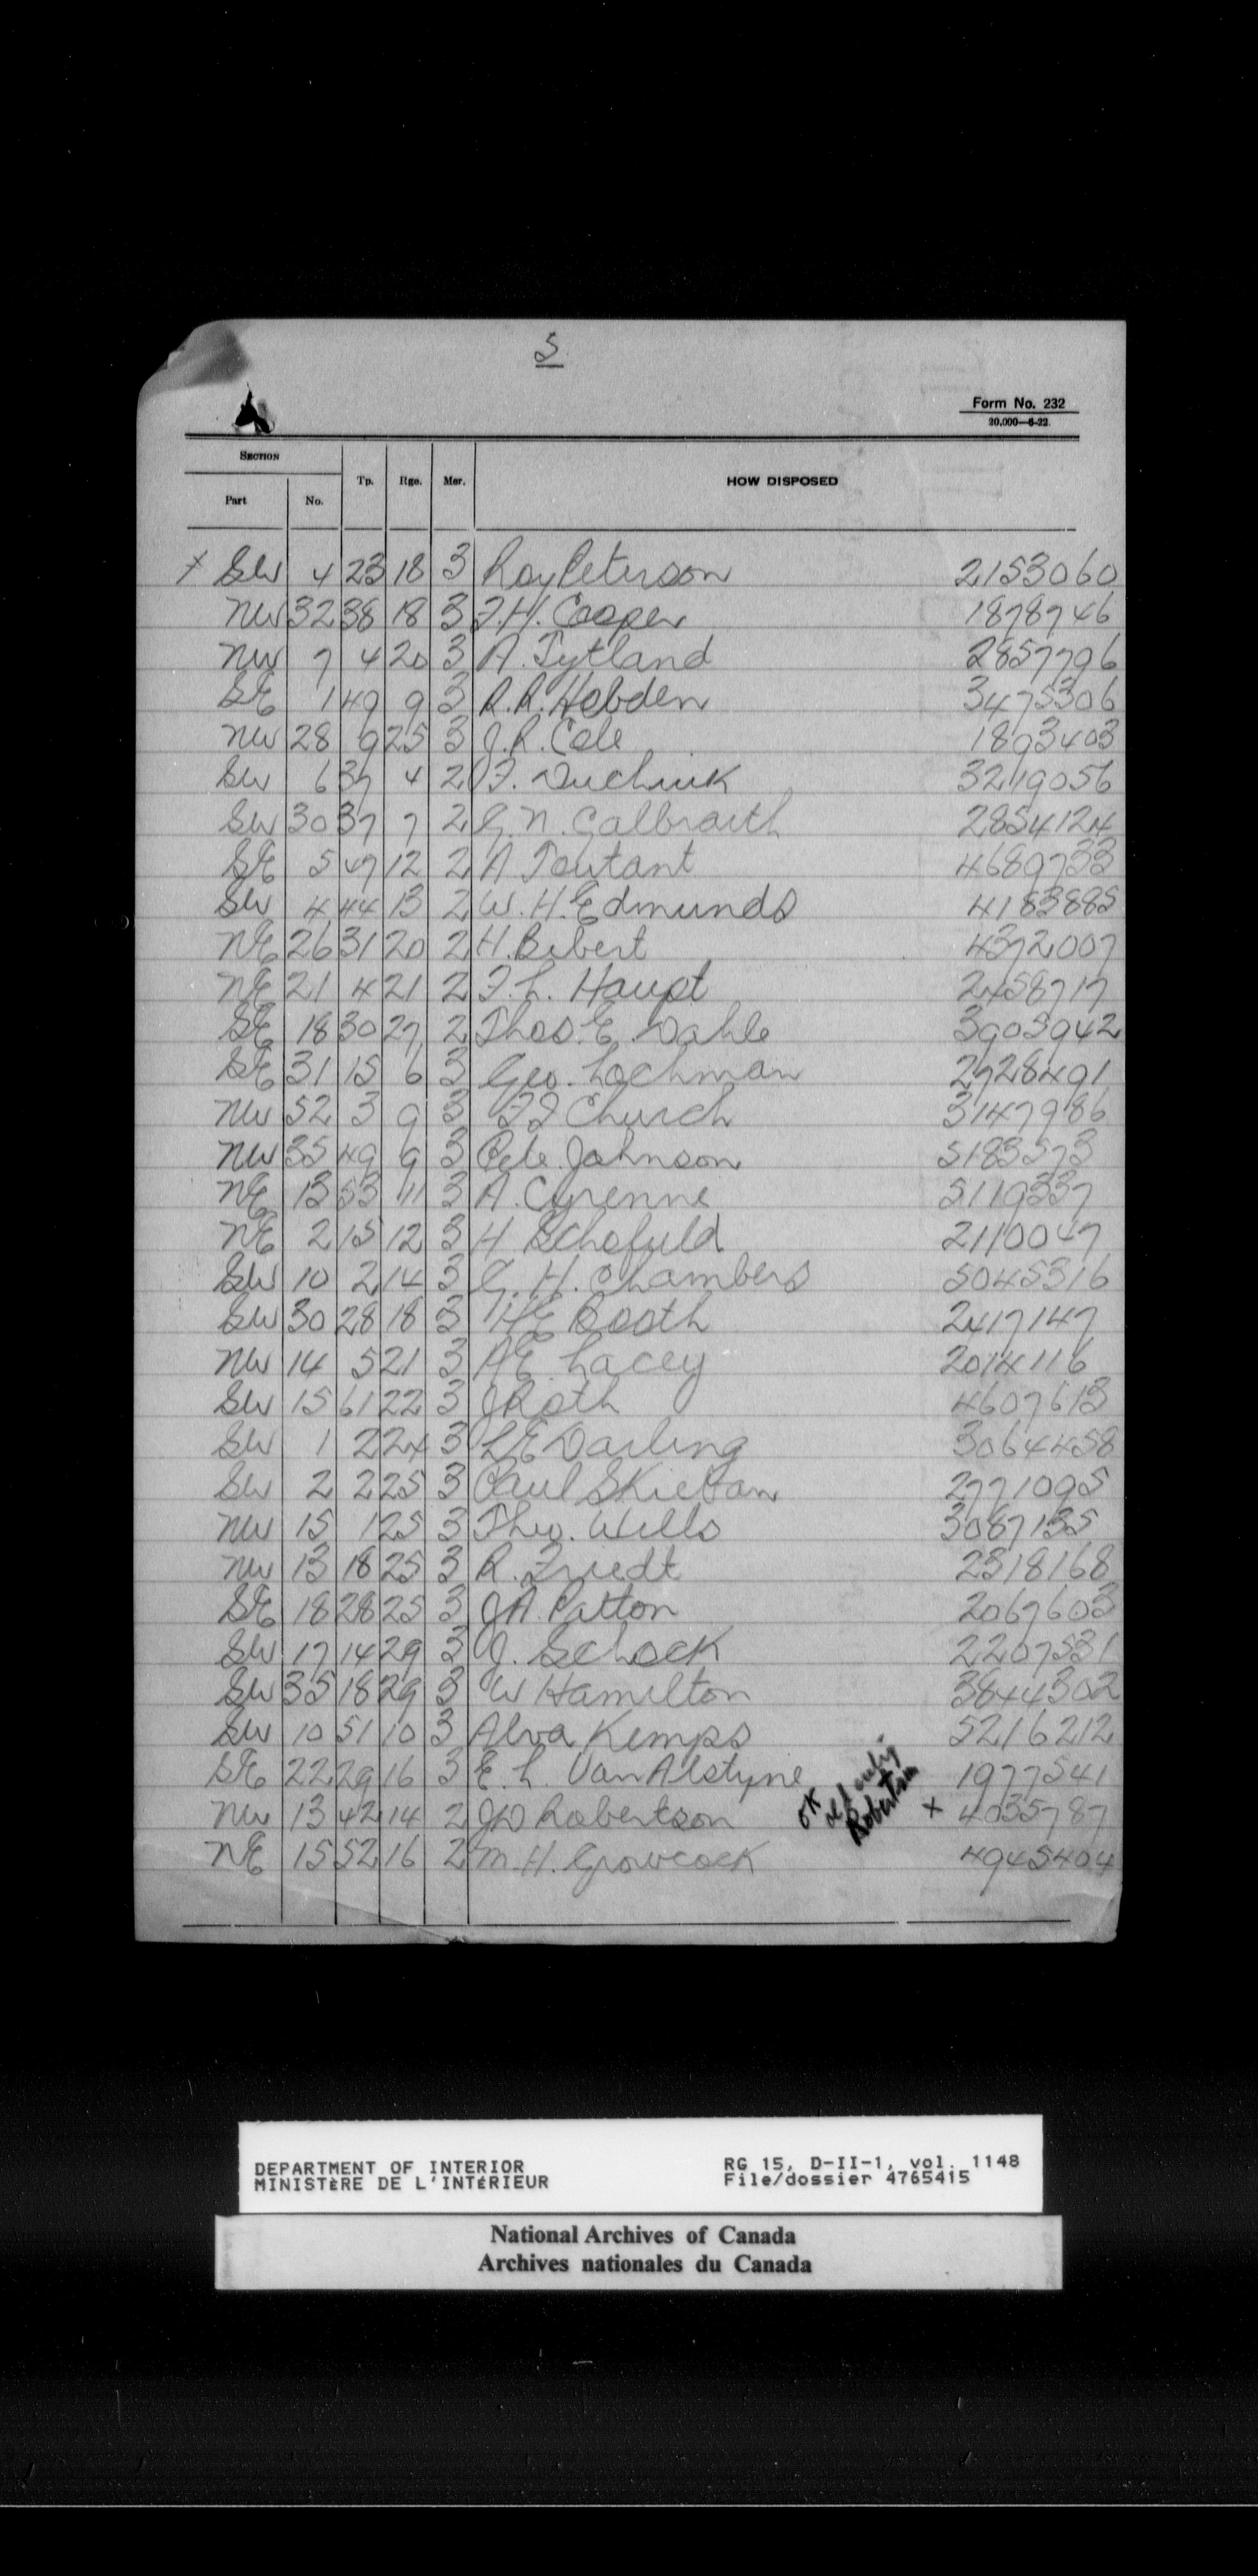 5
Form No. 232
20,000—6-22.
SECTION
Part No. Tp. Rge. Mer. HOW DISPOSED
x SW 4 23 18 3 Roy Peterson 2153060
NW 32 38 18 3 F.H. Cooper 1878746
NW 7 4 20 3 A. Tytland 2857796
SE 1 49 9 3 R.R. Hebden 3475306
NW 28 9 25 3 J.R. Cole 1893403
SW 6 37 4 2 F. 3219056
SW 30 37 7 2 G.N. Galbraith 2854124
SE 5 47 12 2 A Toutant 4689733
SW 4 44 13 2 W.H. Edmunds 4183885
NE 26 31 20 2 H. Bebert 4372007
NE 21 4 21 2 F.L. Haupt 2458717
SE 18 30 27 2 Thos. E. Dahle 3905942
SE 31 15 6 3 Geo. Lochman 2728491
NW 52 3 9 3 Church 3147986
NW 35 49 9 3 Pete Johnson 5183573
NE 13 53 11 3 A. Cyrenne 5119337
NE 2 15 12 3 H Schofield 2110047
SW 10 2 14 3 G.H. Chambers 5045316
SW 30 28 18 3 HE Booth 2417147
NW 14 5 21 3 AE Lacey 2014116
SW 15 61 22 3 J Roth 4607613
SW 1 2 24 3 LE Darling 3064458
SW 2 2 25 3 Paul 2771095
NW 15 1 25 3 Theo. Wells 3087135
NW 13 18 25 3 R. Friedt 2318168
SE 18 28 25 3 JA. Patton 2067603
SW 17 14 29 3 J. Schock 2207531
SW 35 18 29 3 W Hamilton 3844302
SW 10 51 10 3 Alva Kemps 5216212
SE 22 29 16 3 E.L. Van Alstyne 1977541
NW 13 42 14 2 JD Robertson OK Robertson x 4035787
NE 15 52 16 2 M.H. Growcock 4945404
DEPARTMENT OF INTERIOR RG 15, D-II-1, vol. 1148
MINISTÈRE DE L'INTÉRIEUR File/dossier 4765415
National Archives of Canada
Archives nationales du Canada